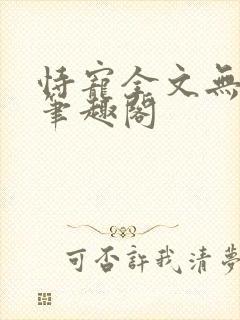 恃寵全文無
筆趣閣
可否許我清夢